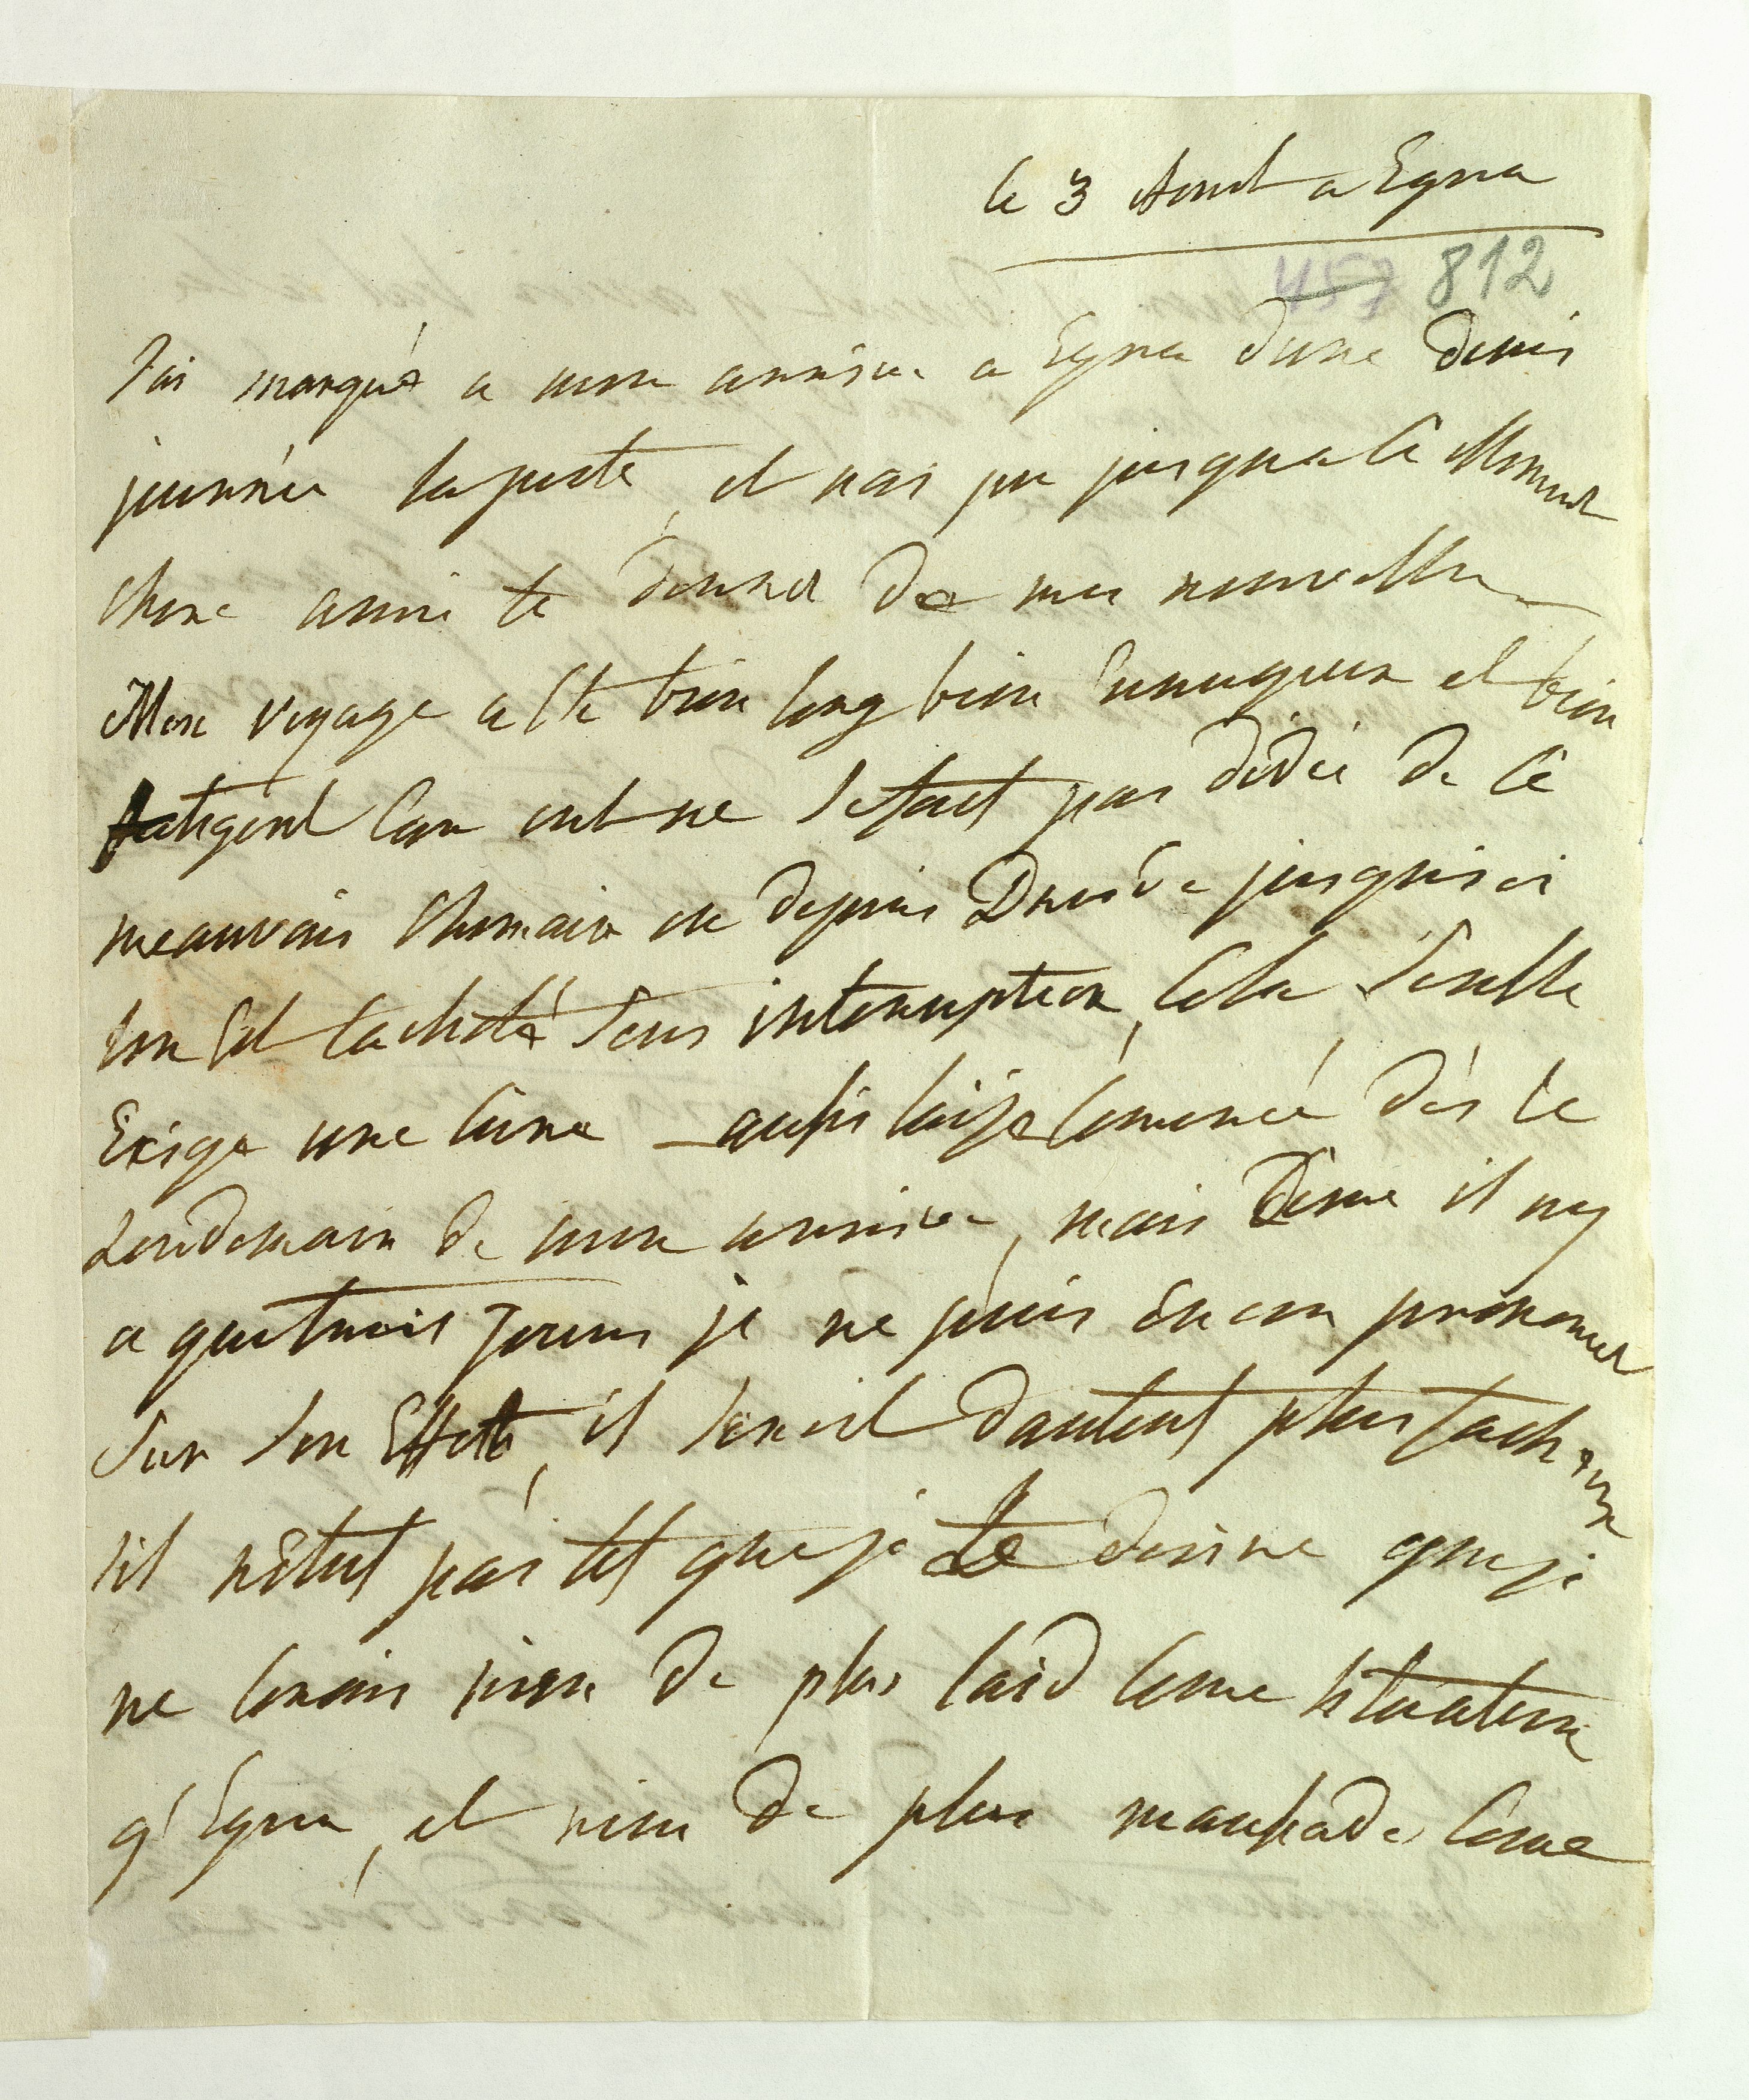 le 3 Aout a Egra
457 812
J'ai manqué a mon arrivee a Egra d'une demis
journée la poste, et n'ai pu jusqua cé Moment
chere amie te donner de mes nouvelles
Mon voyage a été bien long bien ennuyeux et bien
fatigent car ont ne se fait pas d'idée de cé
meauvais chemain on depuis Dresde jusquisci
l'on est cachoté sans interruption, cela seulle
Exige une cure aussi l'aije comencé dés le
Lendemain de mon arrivee, mais come il ny
a que trois jours je ne puis encore prononcer
sur son Effet, il serait dautent plus facheux
s'il n'étut pas tel que je Le desire que je
ne conais rien de plus laid come situation
q'Egra, et rien de plus mausade come